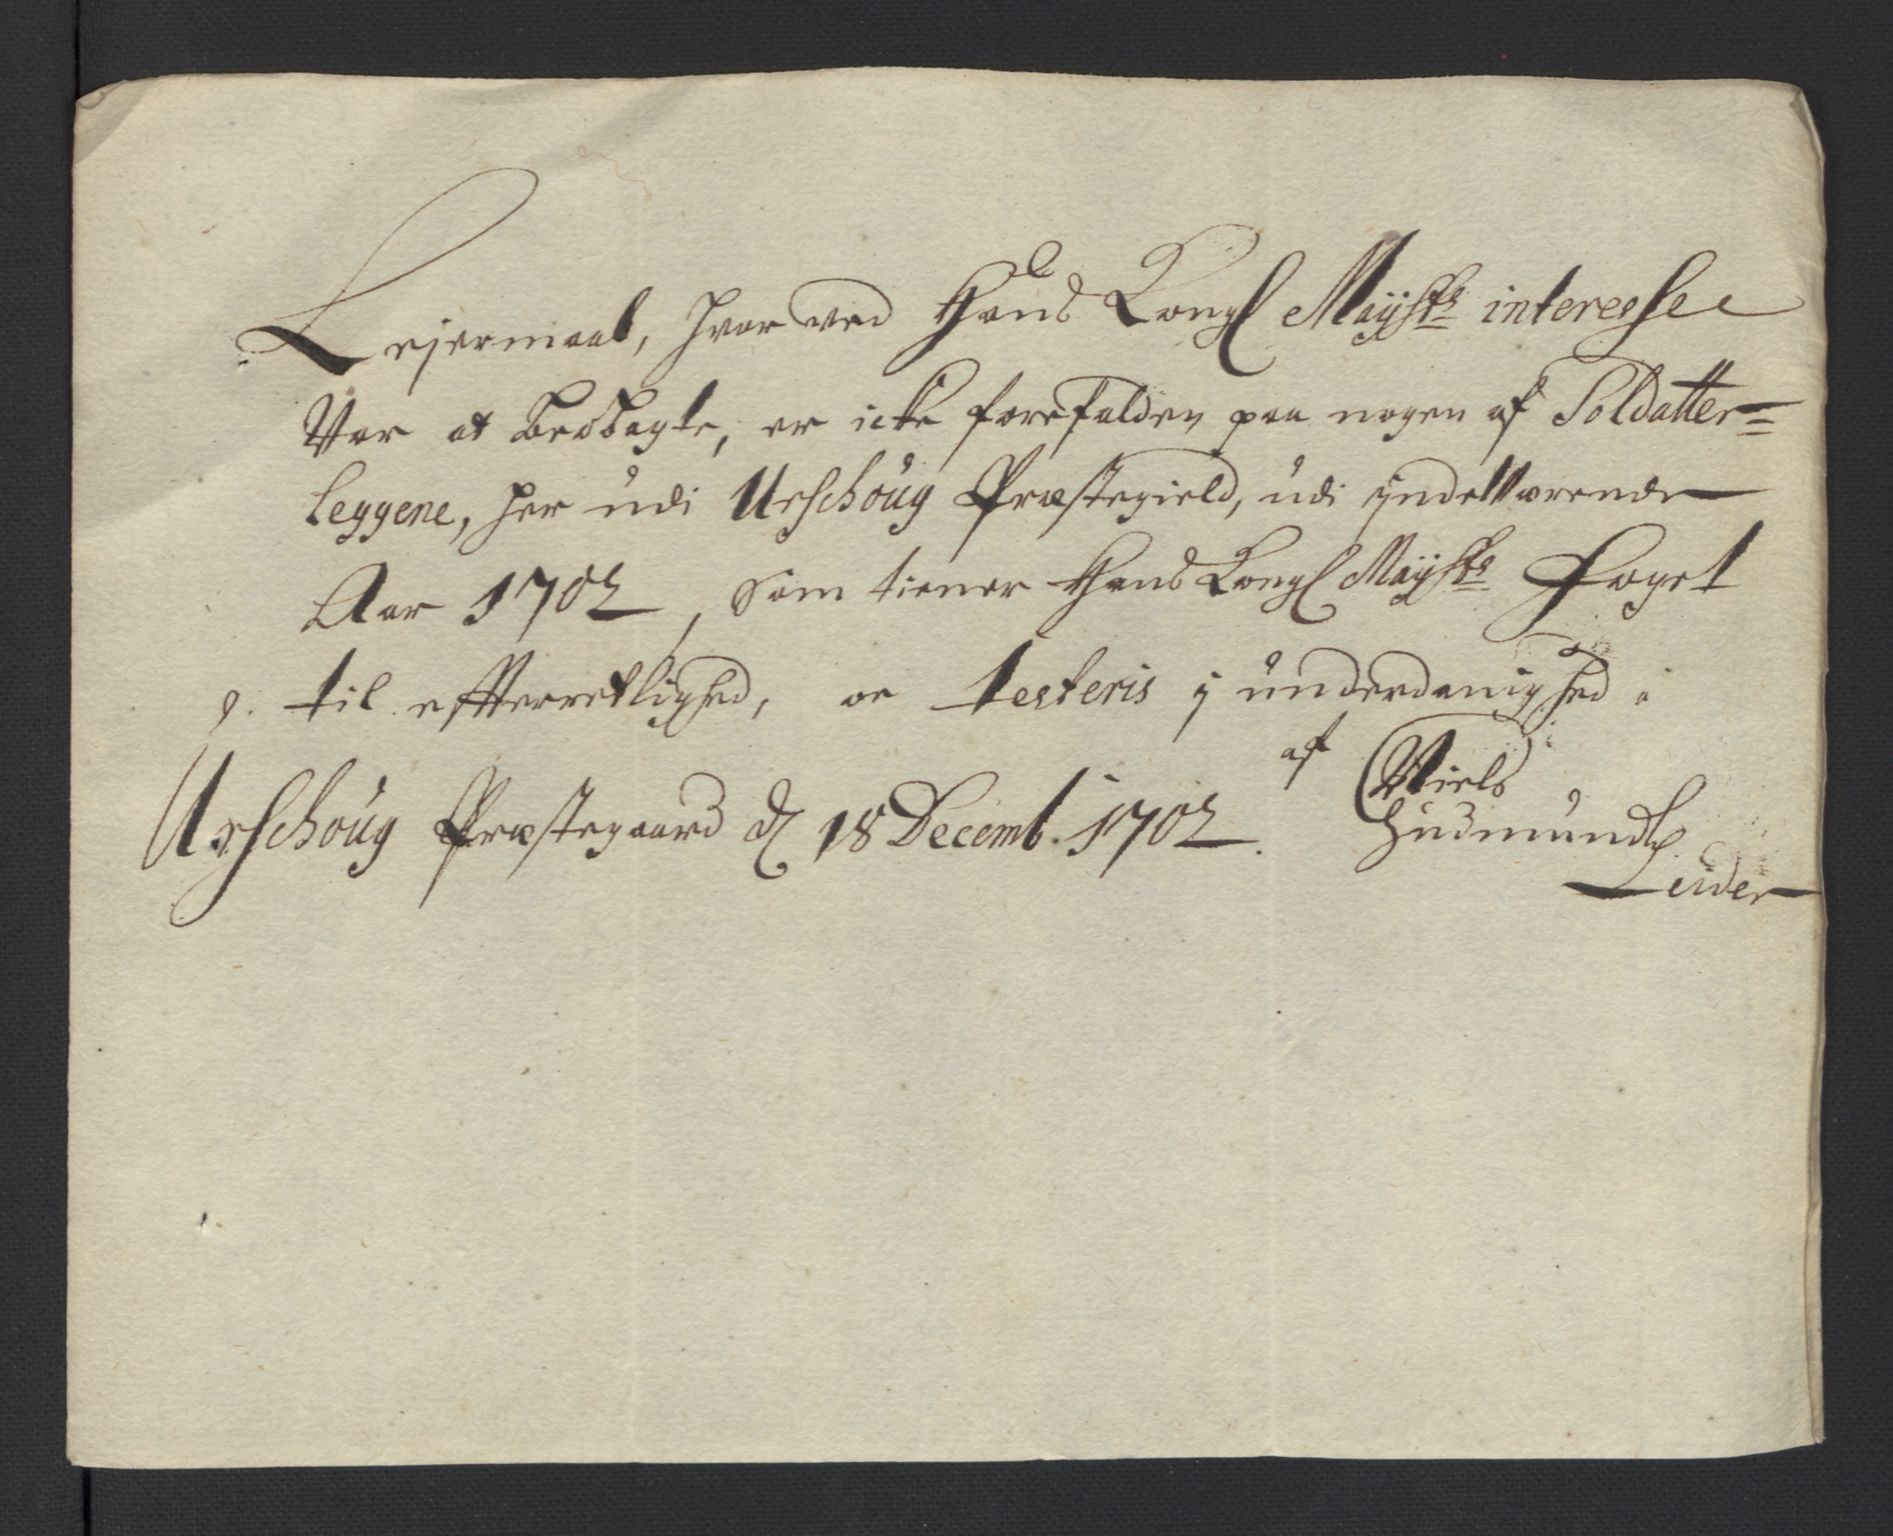 Lejermaal, hvor ved Hans Kongl Mayſts interesse
Var at beobagte, er icke forefalden paa nogen af Soldatter=
leggene, her udi Urschoug Præstegield, udi indeværende
Aar 1702, som tiener Hans Kongl Mayſts Foget
til effterretlighed, oc testeris i underdanighed
af Niels
Urschoug Præstegaard d 18 Decemb. 1702. Gudmunds.
Leuder